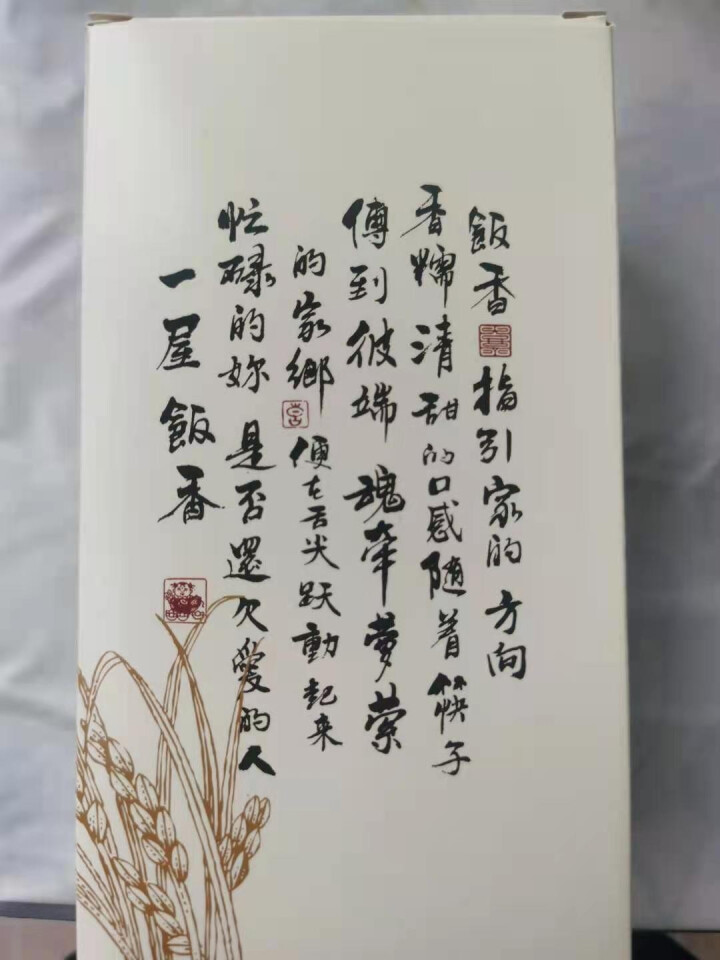 飯香指引家的方向
香糯清甜的口感随着筷子
傳到彼端魂牵夢縈
的家鄉便在舌尖跃動起来
忙碌的妳是否還欠愛的人
一屋飯香